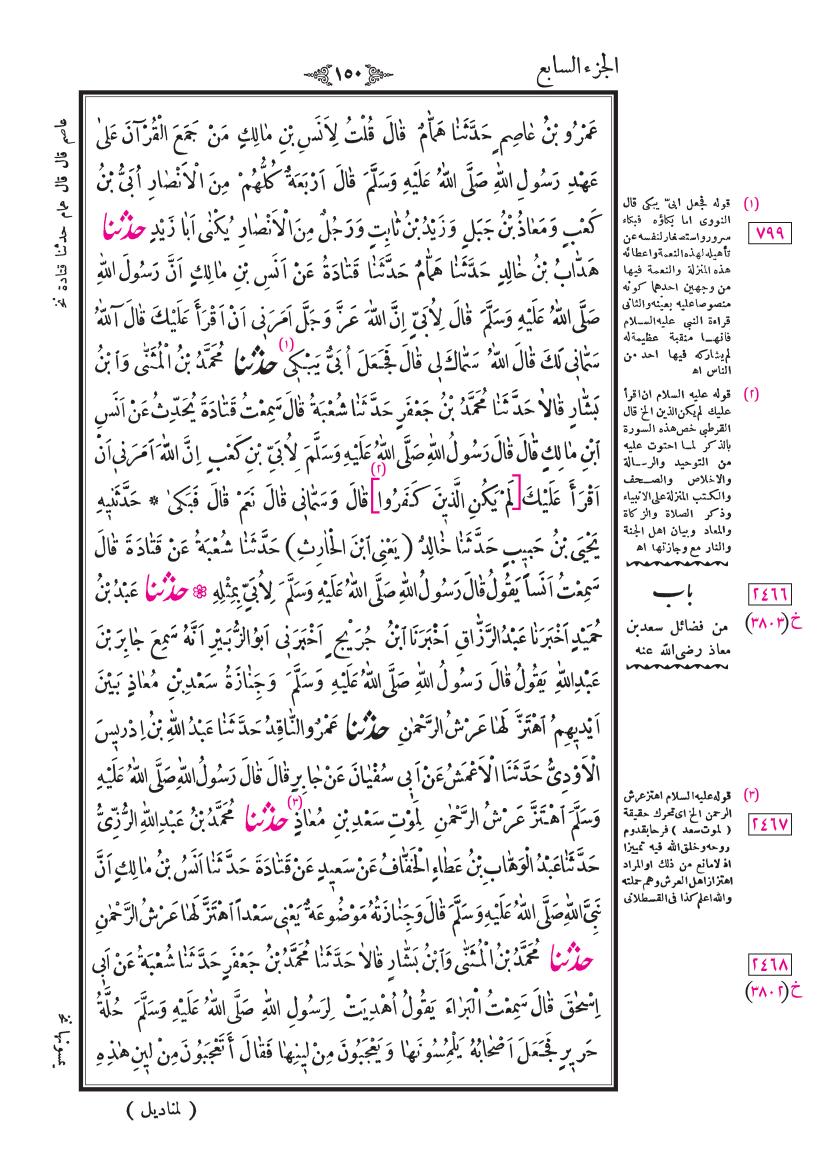 الجزء السابع
١٥٠
عَمْرُو بْنُ عَاصِمٍ حَدَّثَنَا هَمَّامٌ قَالَ قُلْتُ لِاَنَسِ بْنِ مَالِكٍ مَنْ جَمَعَ الْقُرْآنَ عَلىٰ
عَهْدِ رَسُولِ اللهِ صَلَّى اللهُ عَلَيْهِ وَسَلَّمَ قَالَ اَرْبَعَةٌ كُلُّهُمْ مِنَ الْاَنْصَارِ اُبَىُّ بْنُ
كَعْبٍ وَمَعَاذُ بْنُ جَبَلٍ وَزَيْدُ بْنُ ثَابِتٍ وَرَجُلٌ مِنَ الْاَنْصَارِ يُكْنٰى اَبَا زَيْدٍ حدثنا
هَدَّابُ بْنُ خَالِدٍ حَدَّثَنَا هَمَّامٌ حَدَّثَنَا قَتَادَةُ عَنْ اَنَسِ بْنِ مَالِكٍ اَنَّ رَسُولَ اللهِ
صَلَّى اللهُ عَلَيْهِ وَسَلَّمَ قَالَ لِاُبَىٍّ اِنَّ اللهَ عَزَّ وَجَلَّ اَمَرَنِى اَنْ اَقْرَأَ عَلَيْكَ قَالَ آللهُ
سَمَّانِى لَكَ قَالَ اللهُ سَمَّاكَ لِى قَالَ فَجَعَلَ اُبَىٌّ يَبْكِى (١) حدثنا مُحَمَّدُ بْنُ الْمُثَنّٰى وَابْنُ
بَشَّارٍ قَالَا حَدَّثَنَا مُحَمَّدُ بْنُ جَعْفَرٍ حَدَّثَنَا شُعْبَةُ قَالَ سَمِعْتُ قَتَادَةَ يُحَدِّثُ عَنْ اَنَسِ
ابْنِ مَالِكٍ قَالَ قَالَ رَسُولُ اللهِ صَلَّى اللهُ عَلَيْهِ وَسَلَّمَ لِاُبَىِّ بْنِ كَعْبٍ اِنَّ اللهَ اَمَرَنِى اَنْ
اَقْرَأَ عَلَيْكَ [لَمْ يَكُنِ الَّذِينَ كَفَرُوا] (٢) قَالَ وَسَمَّانِى قَالَ نَعَمْ قَالَ فَبَكىٰ * حَدَّثَنِيهِ
يَحْيَى بْنُ حَبِيبٍ حَدَّثَنَا خَالِدٌ (يَعْنِى ابْنَ الْحَارِثِ) حَدَّثَنَا شُعْبَةُ عَنْ قَتَادَةَ قَالَ
سَمِعْتُ اَنَساً يَقُولُ قَالَ رَسُولُ اللهِ صَلَّى اللهُ عَلَيْهِ وَسَلَّمَ لِاُبَىٍّ بِمِثْلِهِ ❁ حدثنا عَبْدُ بْنُ
حُمَيْدٍ اَخْبَرَنَا عَبْدُ الرَّزَّاقِ اَخْبَرَنَا ابْنُ جُرَيْجٍ اَخْبَرَنِى اَبُو الزُّبَيْرِ اَنَّهُ سَمِعَ جَابِرَ بْنَ
عَبْدِ اللهِ يَقُولُ قَالَ رَسُولُ اللهِ صَلَّى اللهُ عَلَيْهِ وَسَلَّمَ وَجَنَازَةُ سَعْدِ بْنِ مُعَاذٍ بَيْنَ
اَيْدِيهِمُ اهْتَزَّ لَهَا عَرْشُ الرَّحْمٰنِ حدثنا عَمْرٌو النَّاقِدُ حَدَّثَنَا عَبْدُ اللهِ بْنُ اِدْرِيسَ
الْاَوْدِىُّ حَدَّثَنَا الْاَعْمَشُ عَنْ اَبِى سُفْيَانَ عَنْ جَابِرٍ قَالَ قَالَ رَسُولُ اللهِ صَلَّى اللهُ عَلَيْهِ
وَسَلَّمَ اهْتَزَّ عَرْشُ الرَّحْمٰنِ لِمَوْتِ سَعْدِ بْنِ مُعَاذٍ (٣) حدثنا مُحَمَّدُ بْنُ عَبْدِ اللهِ الرُّزِّىُّ
حَدَّثَنَا عَبْدُ الْوَهَّابِ بْنُ عَطَاءٍ الْخَفَّافُ عَنْ سَعِيدٍ عَنْ قَتَادَةَ حَدَّثَنَا اَنَسُ بْنُ مَالِكٍ اَنَّ
نَبِىَّ اللهِ صَلَّى اللهُ عَلَيْهِ وَسَلَّمَ قَالَ وَجَنَازَتُهُ مَوْضُوعَةٌ يَعْنِى سَعْداً اهْتَزَّ لَهَا عَرْشُ الرَّحْمٰنِ
حدثنا مُحَمَّدُ بْنُ الْمُثَنّٰى وَابْنُ بَشَّارٍ قَالَا حَدَّثَنَا مُحَمَّدُ بْنُ جَعْفَرٍ حَدَّثَنَا شُعْبَةُ عَنْ اَبِى
اِسْحٰقَ قَالَ سَمِعْتُ الْبَرَاءَ يَقُولُ اُهْدِيَتْ لِرَسُولِ اللهِ صَلَّى اللهُ عَلَيْهِ وَسَلَّمَ حُلَّةُ
حَرِيرٍ فَجَعَلَ اَصْحَابُهُ يَلْمِسُونَهَا وَيَعْجَبُونَ مِنْ لِينِهَا فَقَالَ أَتَعْجَبُونَ مِنْ لِينِ هٰذِهِ
( لمناديل )
(١) قوله فجعل ابىّ يبكى قال
النووى اما بكاؤه فبكاء
سرور واستصغار لنفسه عن
تأهيله لهذه النعمة واعطائه
هذه المنزلة والنعمة فيها
من وجهين احدها كونه
منصوصا عليه بعينه والثانى
قراءة النبى عليه السلام
فانهـا منقبة عظيمة له
لم يشاركه فيها احد من
الناس اه
٧٩٩
(٢) قوله عليه السلام ان اقرأ
عليك لم يكن الذين الخ قال
القرطبى خص هذه السورة
بالذكر لما احتوت عليه
من التوحيد والرسالة
والاخلاص والصحف
والكتب المنزلة على الانبياء
وذكر الصلاة والزكاة
والمعاد وبيان اهل الجنة
والنار مع وجازتها اه
باب
من فضائل سعد بن
معاذ رضى الله عنه
٢٤٦٦
خ (٣٨٠٣)
(٣) قوله عليه السلام اهتز عرش
الرحمن الخ اى تحرك حقيقة
( لموت سعد ) فرحا بقدوم
روحه وخلق الله فيه تمييزا
اذ لا مانع من ذلك او المراد
اهتزاز اهل العرش وهم حملته
والله اعلم كذا فى القسطلانى
٢٤٦٧
٢٤٦٨
خ (٣٨٠٢)